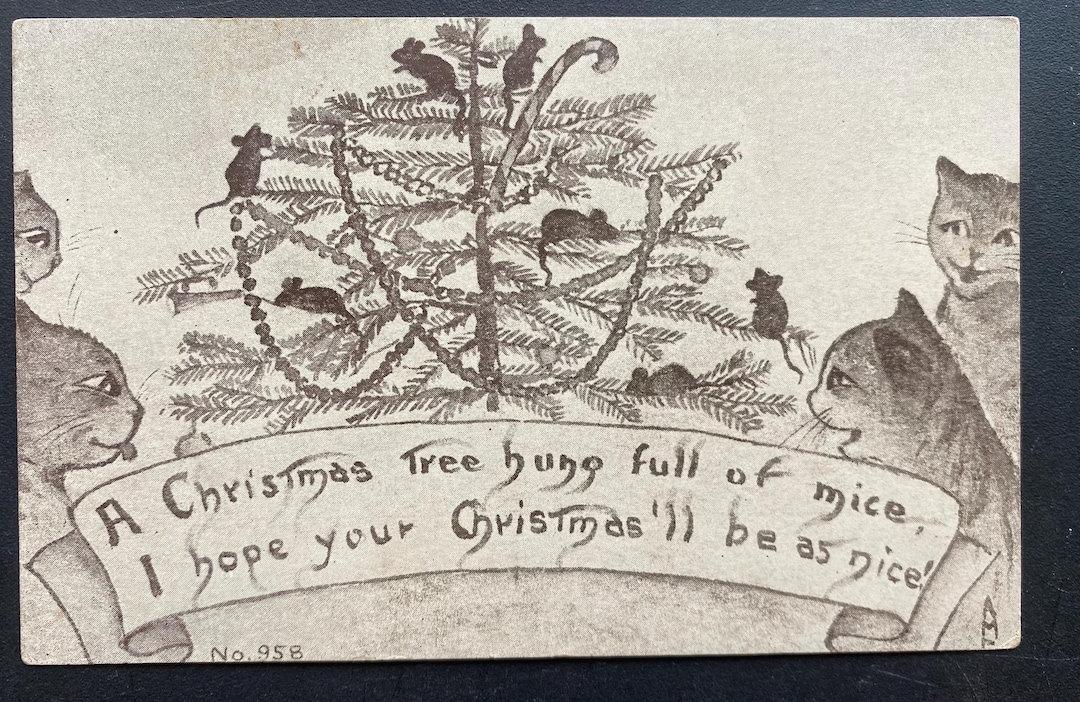 A Christmas Tree hung full of mice,
I hope your Christmas'll be as nice!
No. 958